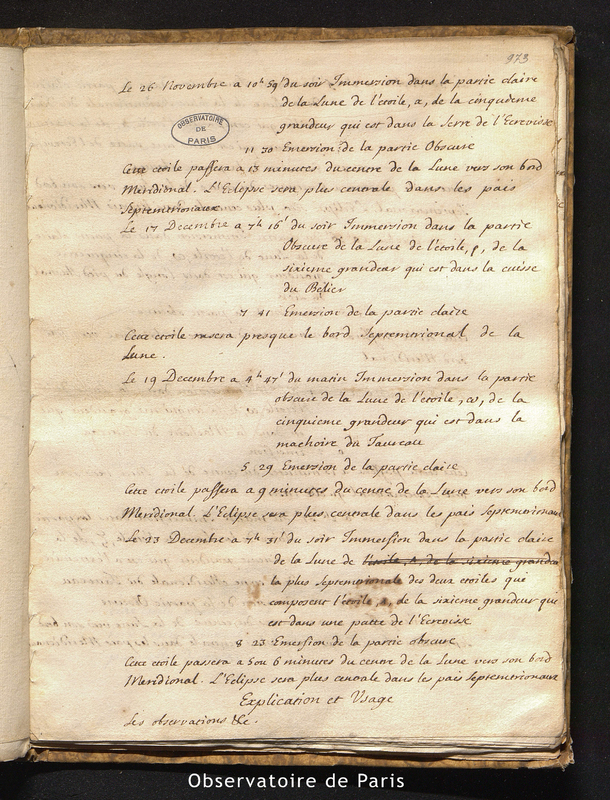 973
Le 26 Novembre a 10h 59' du soir Immersion dans la partie claire
de la Lune de l'étoile, a, de la cinquieme
grandeur qui est dans la serre de l'Ecrevisse
OBSERVATOIRE
DE
PARIS
11 30 Emersion de la partie Obscure
Cette etoile passera a 13 minutes du centre de la Lune vers son bord
Meridional. L'Eclipse sera plus centrale dans les païs
Septemtrionaux
Le 17 Decembre a 7h 16' du soir Immersion dans la partie
Obscure de la Lune de l'étoile, ρ, de la
sixieme grandeur qui est dans la cuisse
du Belier
7 41 Emersion de la partie claire
Cette etoile rasera presque le bord Septemtrional de la
Lune.
Le 19 Decembre a 4h 47' du matin Immersion dans la partie
obscure de la Lune de l'étoile, ω, de la
cinquieme grandeur qui est dans la
machoire du Taureau
5 29 Emersion de la partie claire
Cette etoile passera a 9 minutes du centre de la Lune vers son bord
Meridional. L'Eclipse sera plus centrale dans les païs Septemtrionaux
Le 23 Decembre a 7h 31' du soir Immersion dans la partie claire
de la Lune de l'étoile, a, de la sixieme grandeur
la plus septemtrionale des deux étoiles qui
composent l'étoile, a, de la sixieme grandeur qui
est dans une patte de l'Ecrevisse
8 23 Emersion de la partie obscure
Cette etoile passera a 5 ou 6 minutes du centre de la Lune vers son bord
Meridional. L'Eclipse sera plus centrale dans les païs Septemtrionaux
Explication et Usage
Les observations &c.
Observatoire de Paris